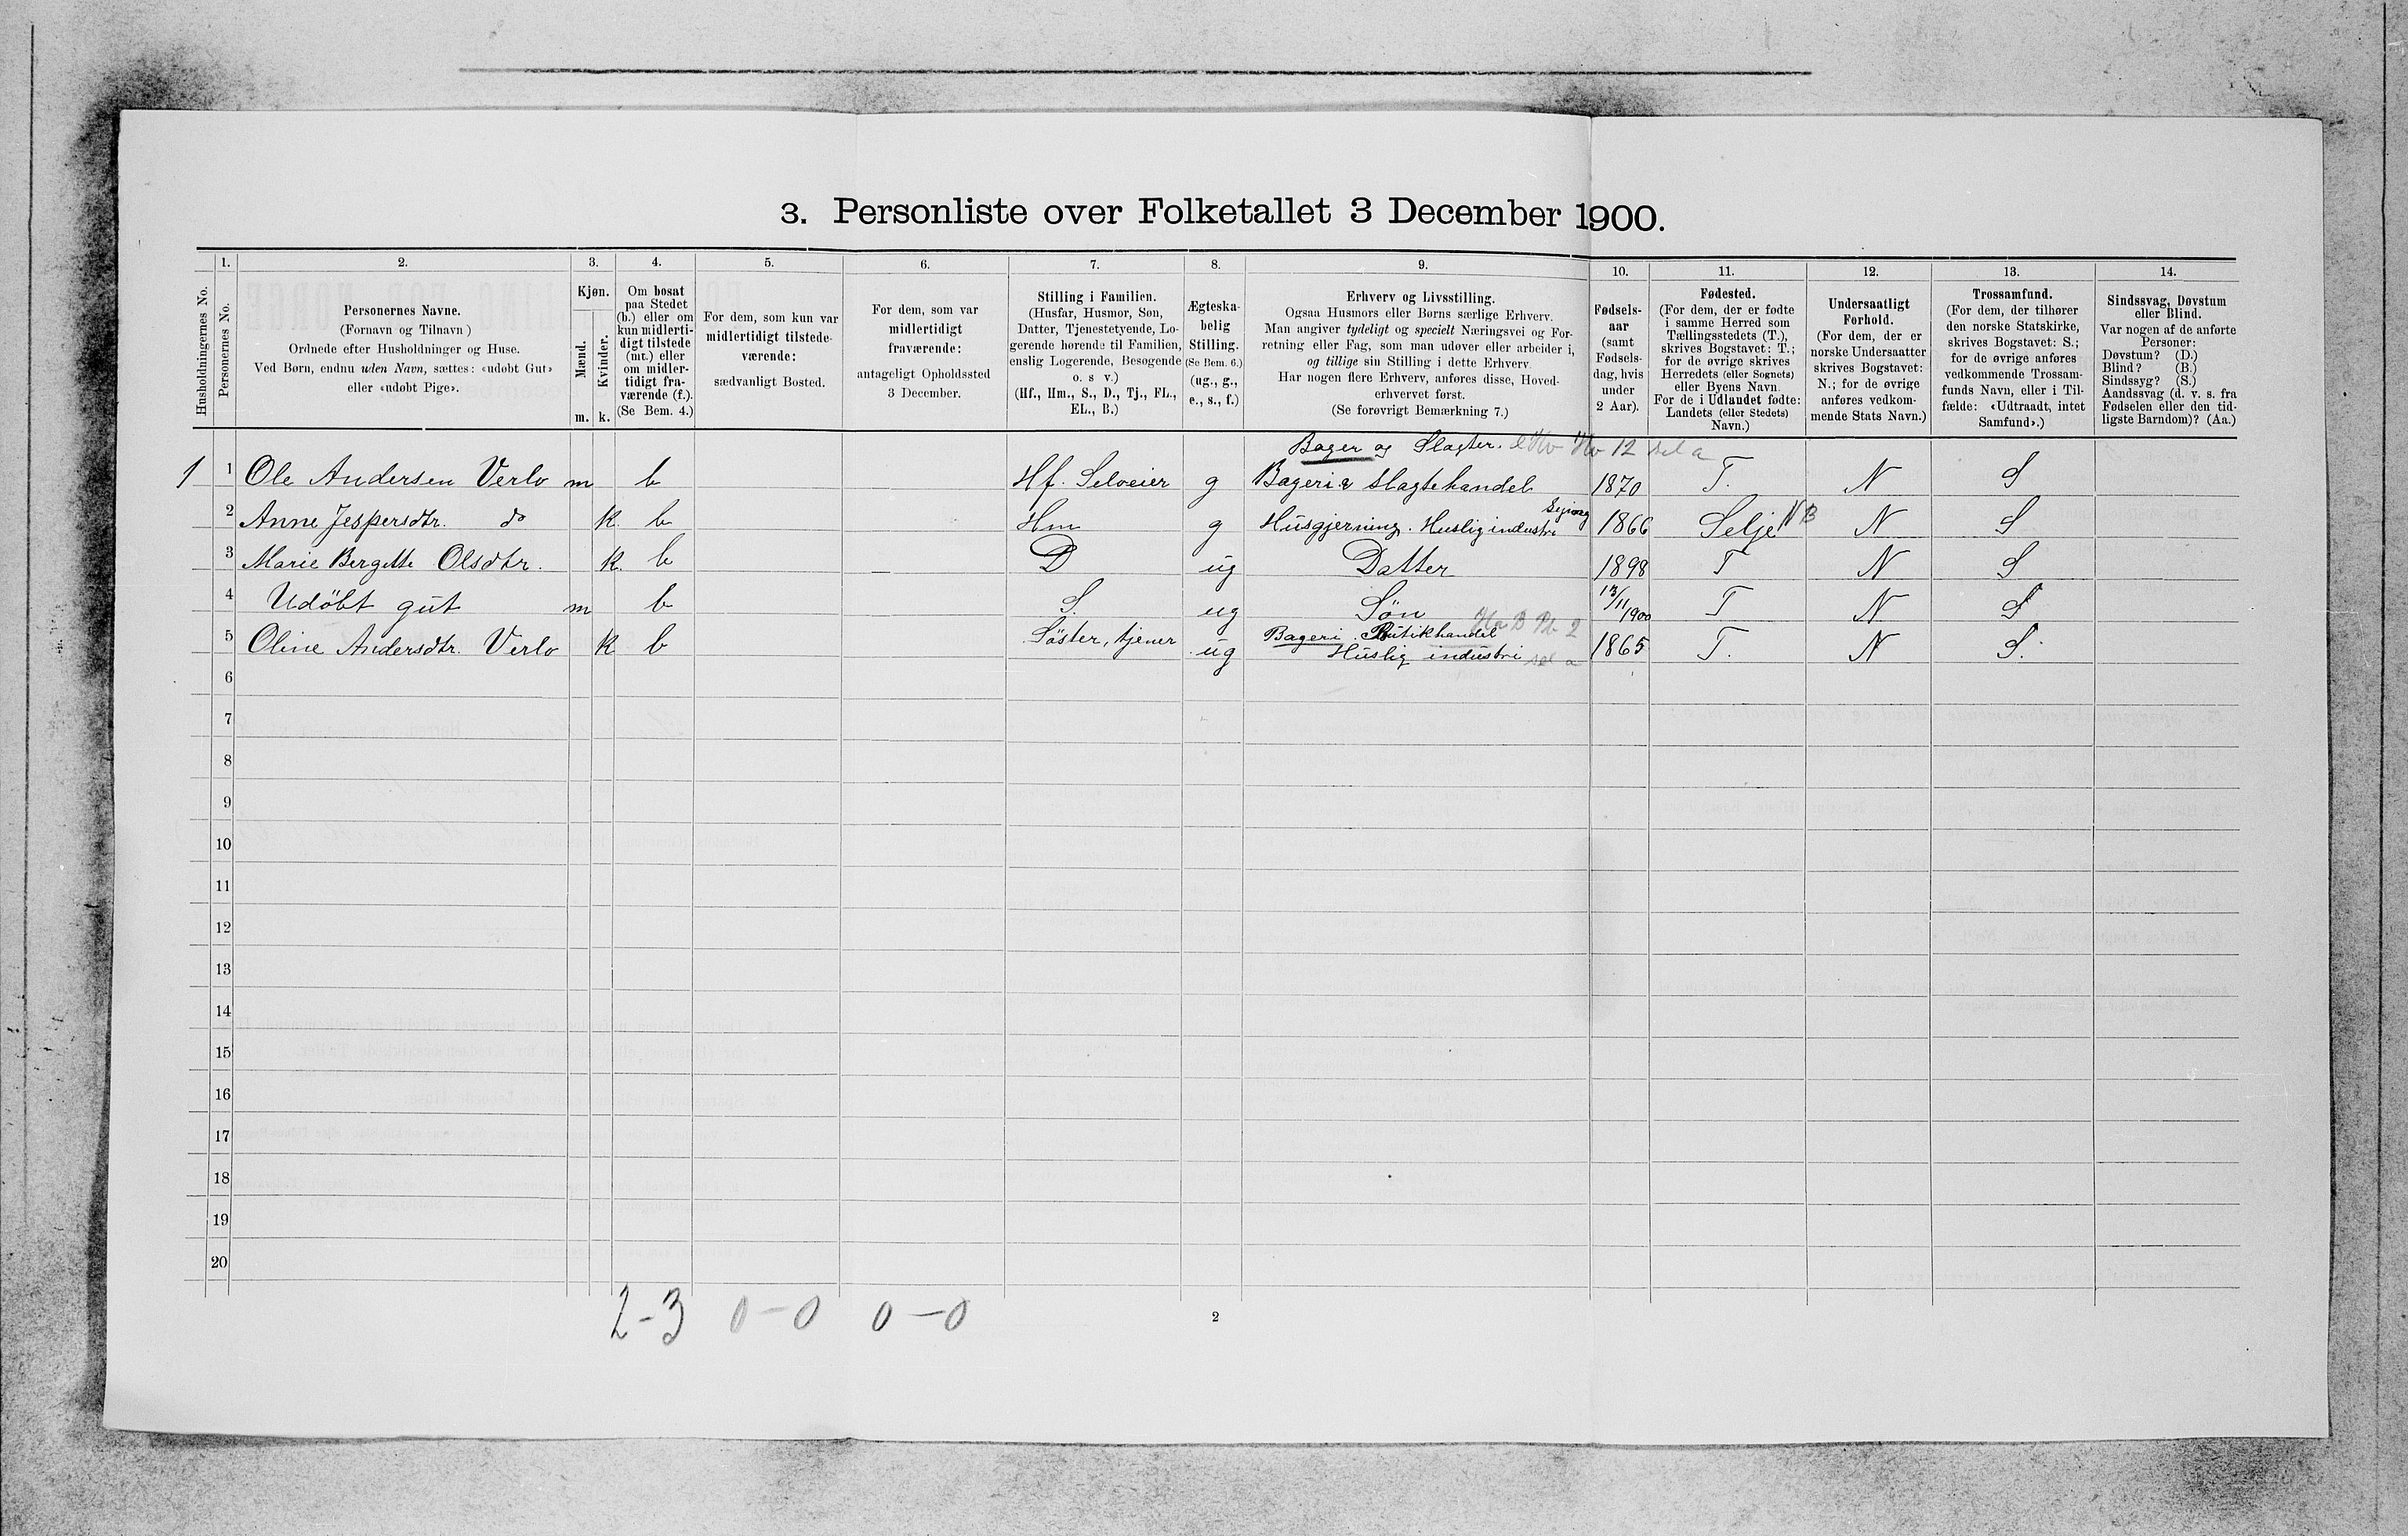 3. Personliste over Folketallet 3 December 1900.
Husholdningernes No.
1.
Personernes No.
2.
Personernes Navne.
(Fornavn og Tilnavn)
Ordnede efter Husholdninger og Huse.
Ved Børn, endnu uden Navn, sættes: «udøbt Gut»
eller «udøbt Pige».
3.
Kjøn.
Mænd.
Kvinder.
m. k.
4.
Om bosat
paa Stedet
(b.) eller om
kun midlerti-
digt tilstede
(mt.) eller
om midler-
tidigt fra-
værende (f.).
(Se Bem. 4.)
5.
For dem, som kun var
midlertidigt tilstede-
værende:
sædvanligt Bosted.
6.
For dem, som var
midlertidigt
fraværende:
antageligt Opholdssted
3 December.
7.
Stilling i Familien.
(Husfar, Husmor, Søn,
Datter, Tjenestetyende, Lo-
gerende hørende til Familien,
enslig Logerende, Besøgende
o. s v.)
(Hf., Hm., S., D., Tj., FL.,
EL., B.)
8.
Ægteska-
belig
Stilling.
(Se Bem. 6.)
(ug., g.,
e., s., f.)
9.
Erhverv og Livsstilling.
Ogsaa Husmors eller Børns særlige Erhverv.
Man angiver tydeligt og specielt Næringsvei og For-
retning eller Fag, som man udøver eller arbeider i,
og tillige sin Stilling i dette Erhverv.
Har nogen flere Erhverv, anføres disse, Hoved-
erhvervet først.
(Se forøvrigt Bemærkning 7.)
10.
Fødsels-
aar
(samt
Fødsels-
dag, hvis
under
2 Aar).
11.
Fødested.
(For dem, der er fødte
i samme Herred som
Tællingsstedets (T.),
skrives Bogstavet: T.;
for de øvrige skrives
Herredets (eller Sognets)
eller Byens Navn.
For de i Udlandet fødte:
Landets (eller Stedets)
Navn.)
12.
Undersaatligt
Forhold.
(For dem, der er
norske Undersaatter
skrives Bogstavet:
N.; for de øvrige
anføres vedkom-
mende Stats Navn.)
13.
Trossamfund.
(For dem, der tilhører
den norske Statskirke,
skrives Bogstavet: S.;
for de øvrige anføres
vedkommende Trossam-
funds Navn, eller i Til-
fælde: «Udtraadt, intet
Samfund».)
14.
Sindssvag, Døvstum
eller Blind.
Var nogen af de anførte
Personer:
Døvstum? (D.)
Blind? (B.)
Sindssyg? (S.)
Aandssvag (d. v. s. fra
Fødselen eller den tid-
ligste Barndom)? (Aa.)
Bager og Slagter. 12 sel a
1 1 Ole Andersen Verlo m b Hf. Selveier g Bageri & slagtehandel 1870 T. N S
2 Anne Jespersdtr. do k. b Hm g Husgjerning. Huslig industri 1866 Selje NB N S
3 Marie Bergitte Olsdtr. k. b D ug Datter 1898 T N S
4 Udöbt gut m b S. ug Søn 13/11 1900 T N S
5 Oline Andersdtr. Verlo k b Söster, tjener ug Bageri. Butikhandel 1865 T. N S.
Huslig industri sel a
6
7
8
9
10
11
12
13
14
15
16
17
18
19
20
2-3 0-0 0-0
2